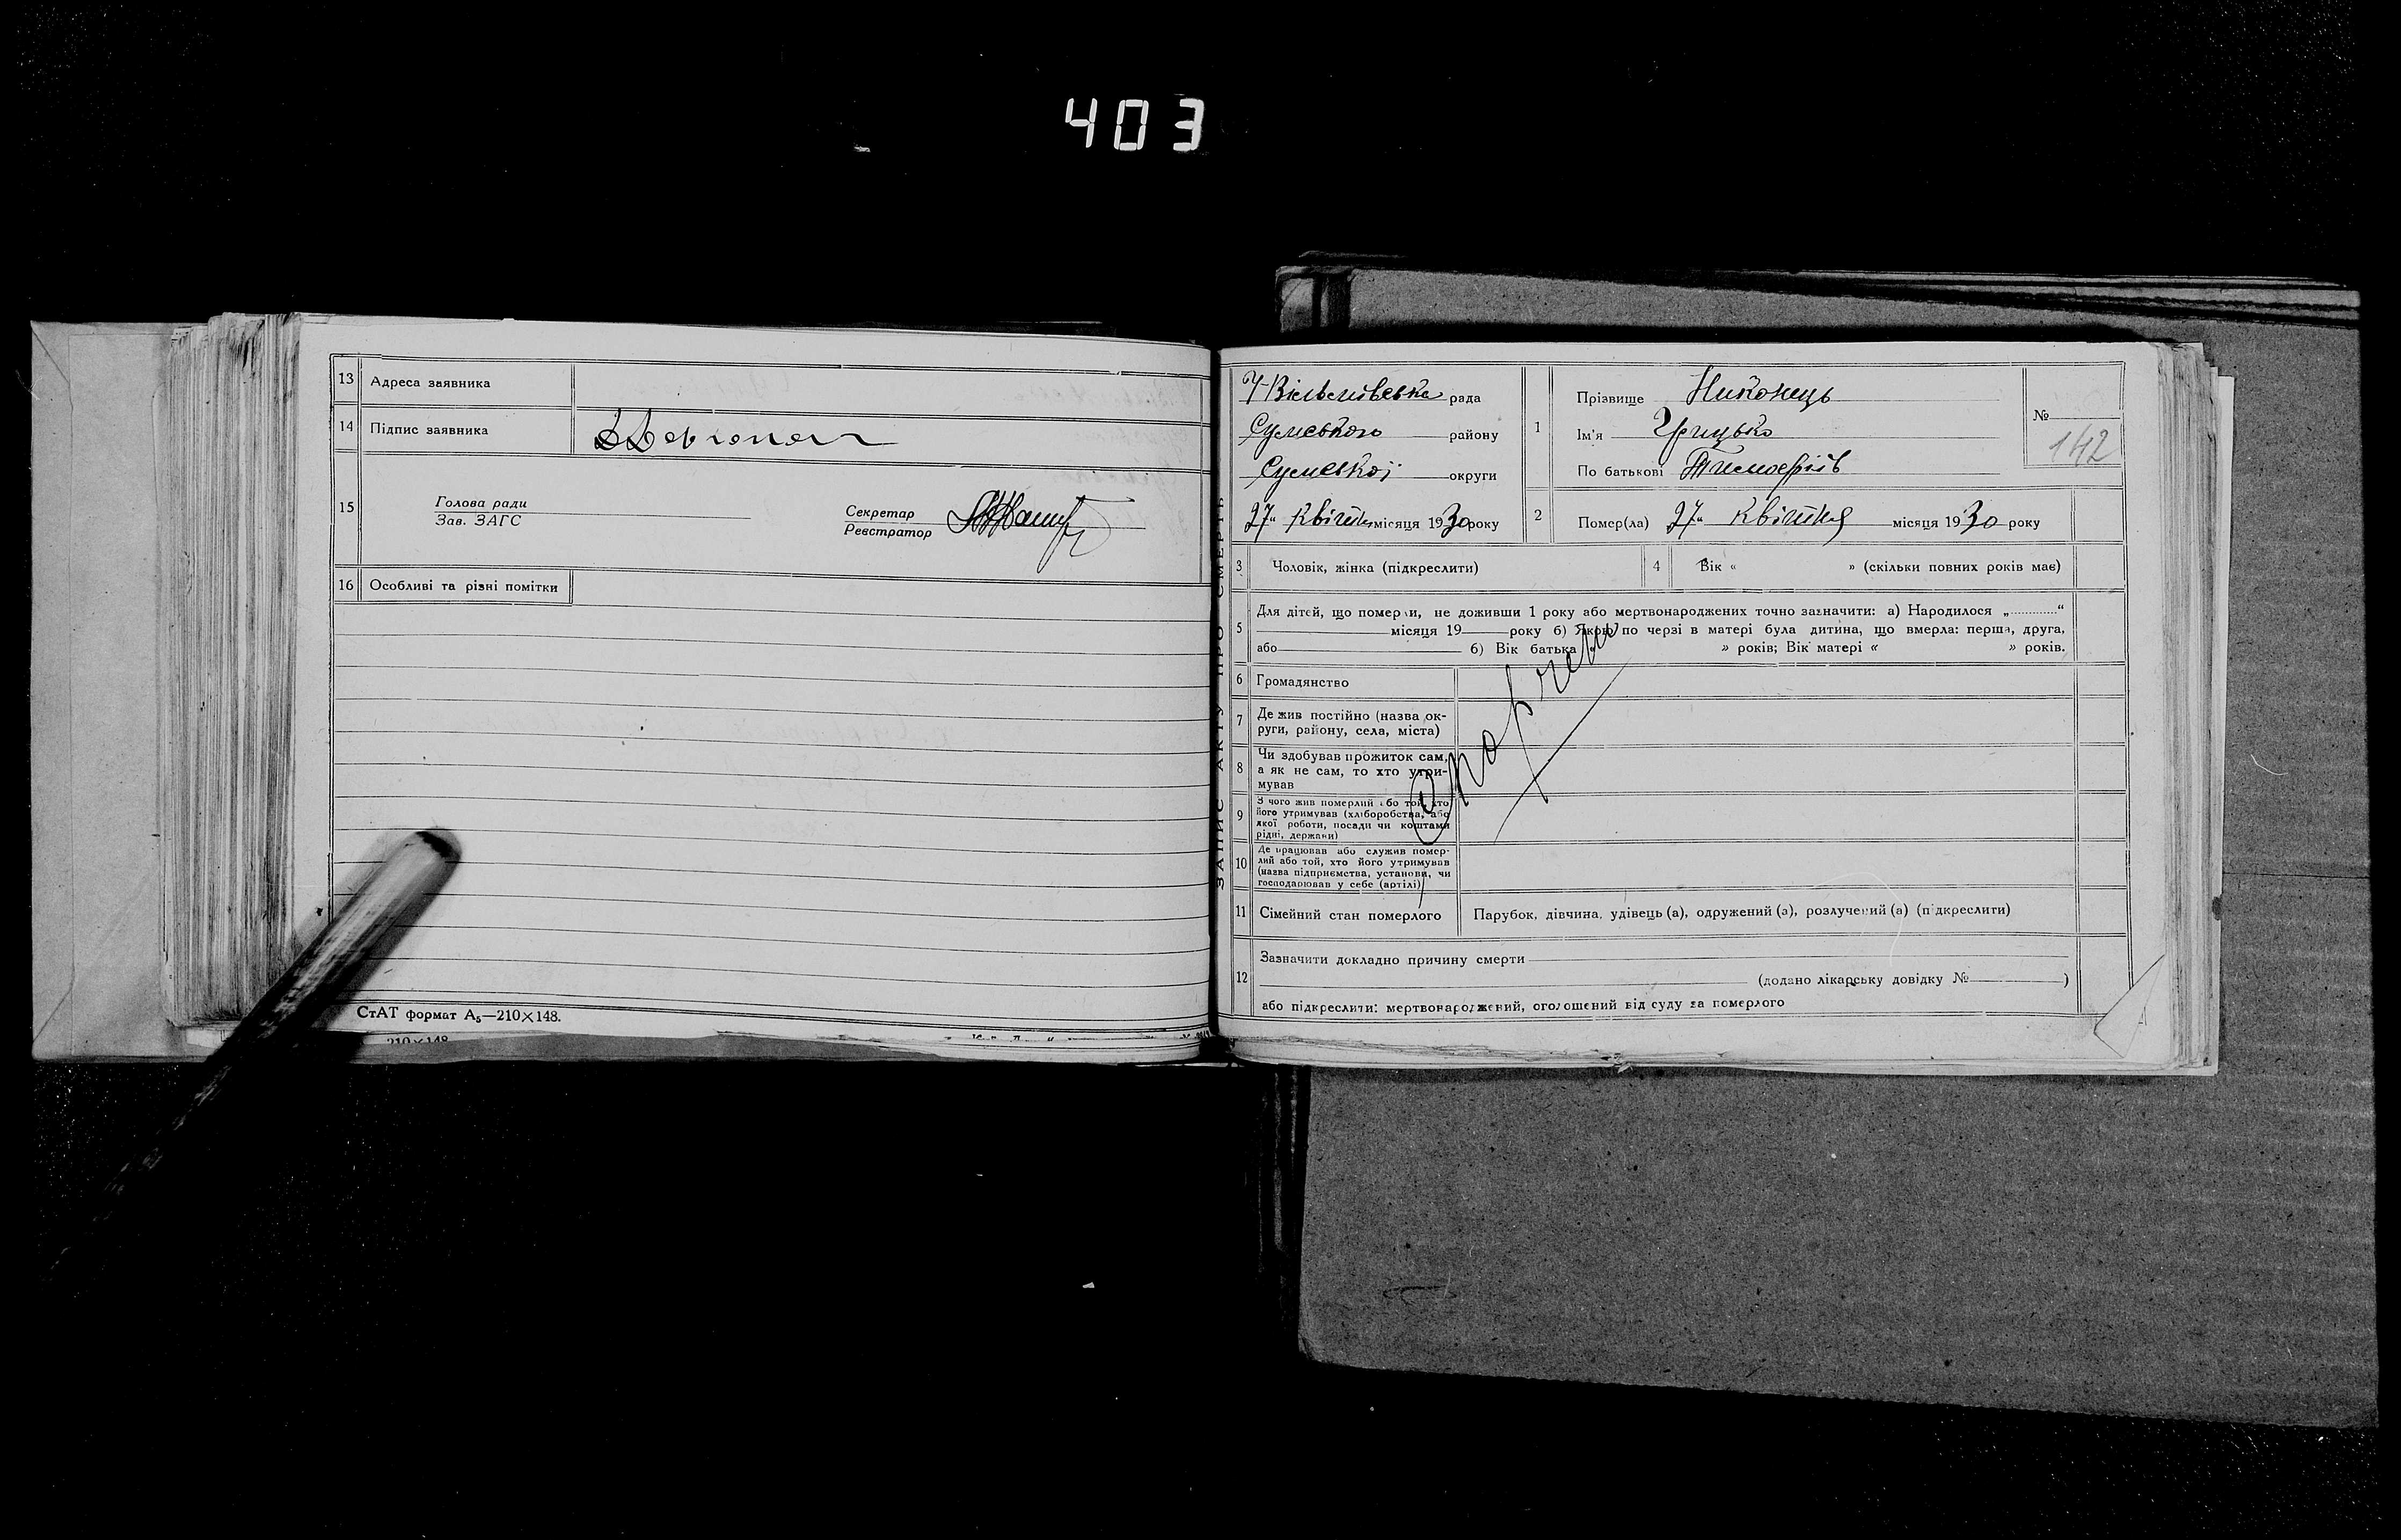 403
13 Адреса заявника
14 Підпис заявника
15 Голова ради
Зав. ЗАГС
Секретар
Реєстратор
16 Особливі та різні помітки
СтАТ формат А₅—210×148.
210×148
ЗАПИС АКТУ ПРО СМЕРТЬ
рада
Сумського району
Сумської округи
27 " Квітня місяця 1930 року
1 Прізвище Никонець
Ім'я Грицько
По батькові Тимофіїв
№
142
2 Помер(ла) 27 " Квітня місяця 1930 року
3 Чоловік, жінка (підкреслити)
4 Вік « » (скільки повних років має)
5 Для дітей, що померли, не доживши 1 року або мертвонароджених точно зазначити: а) Народилося „ “
місяця 19 року б) Якою по черзі в матері була дитина, що вмерла: перша, друга,
або б) Вік батька « » років; Вік матері « » років.
6 Громадянство
7 Де жив постійно (назва ок-
руги, району, села, міста)
8 Чи здобував прожиток сам,
а як не сам, то хто утри-
мував
9 З чого жив померлий або той, хто
його утримував (хліборобства, або
якої роботи, посади чи коштами
рідні, держави)
10 Де працював або служив помер-
лий або той, хто його утримував
(назва підприємства, установи, чи
господарював у себе (артілі)
11 Сімейний стан померлого
Парубок, дівчина, удівець (а), одружений (а), розлучений (а) (підкреслити)
12 Зазначити докладно причину смерти
(додано лікарську довідку № )
або підкреслити: мертвонароджений, оголошений від суду за померлого